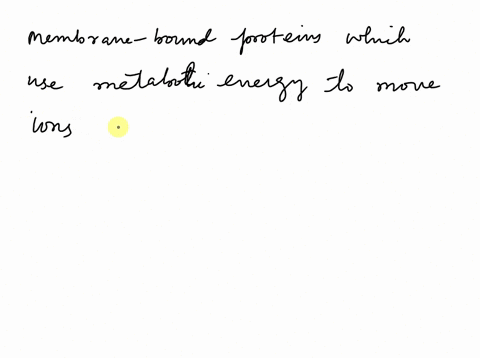 membrane-bound proteins which
use metabolic energy to move
ions